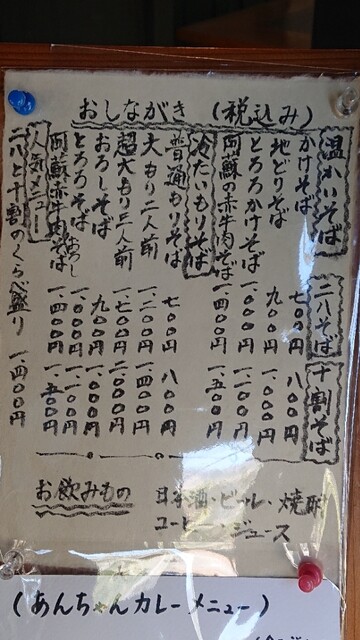 おしながき (税込み)
温かいそば 二八そば 十割そば
かけそば 七〇〇円 八〇〇円
地どりそば 九〇〇円 一.〇〇〇円
とろろかけそば 一.〇〇〇円 一.一〇〇円
阿蘇の赤牛肉そば 一.四〇〇円 一.五〇〇円
冷たいもりそば
普通もりそば 七〇〇円 八〇〇円
大もり二人前 一.二〇〇円 一.四〇〇円
超大もり三人前 一.七〇〇円 二.〇〇〇円
おろしそば 九〇〇円 一.〇〇〇円
とろろそば 一.〇〇〇円 一.一〇〇円
阿蘇赤牛肉おろしそば 一.四〇〇円 一.五〇〇円
人気メニュー
二八と十割のくらべ盛り 一.四〇〇円
お飲みもの 日本酒・ビール・焼酎
コーヒー・ジュース
(あんちゃんカレーメニュー)